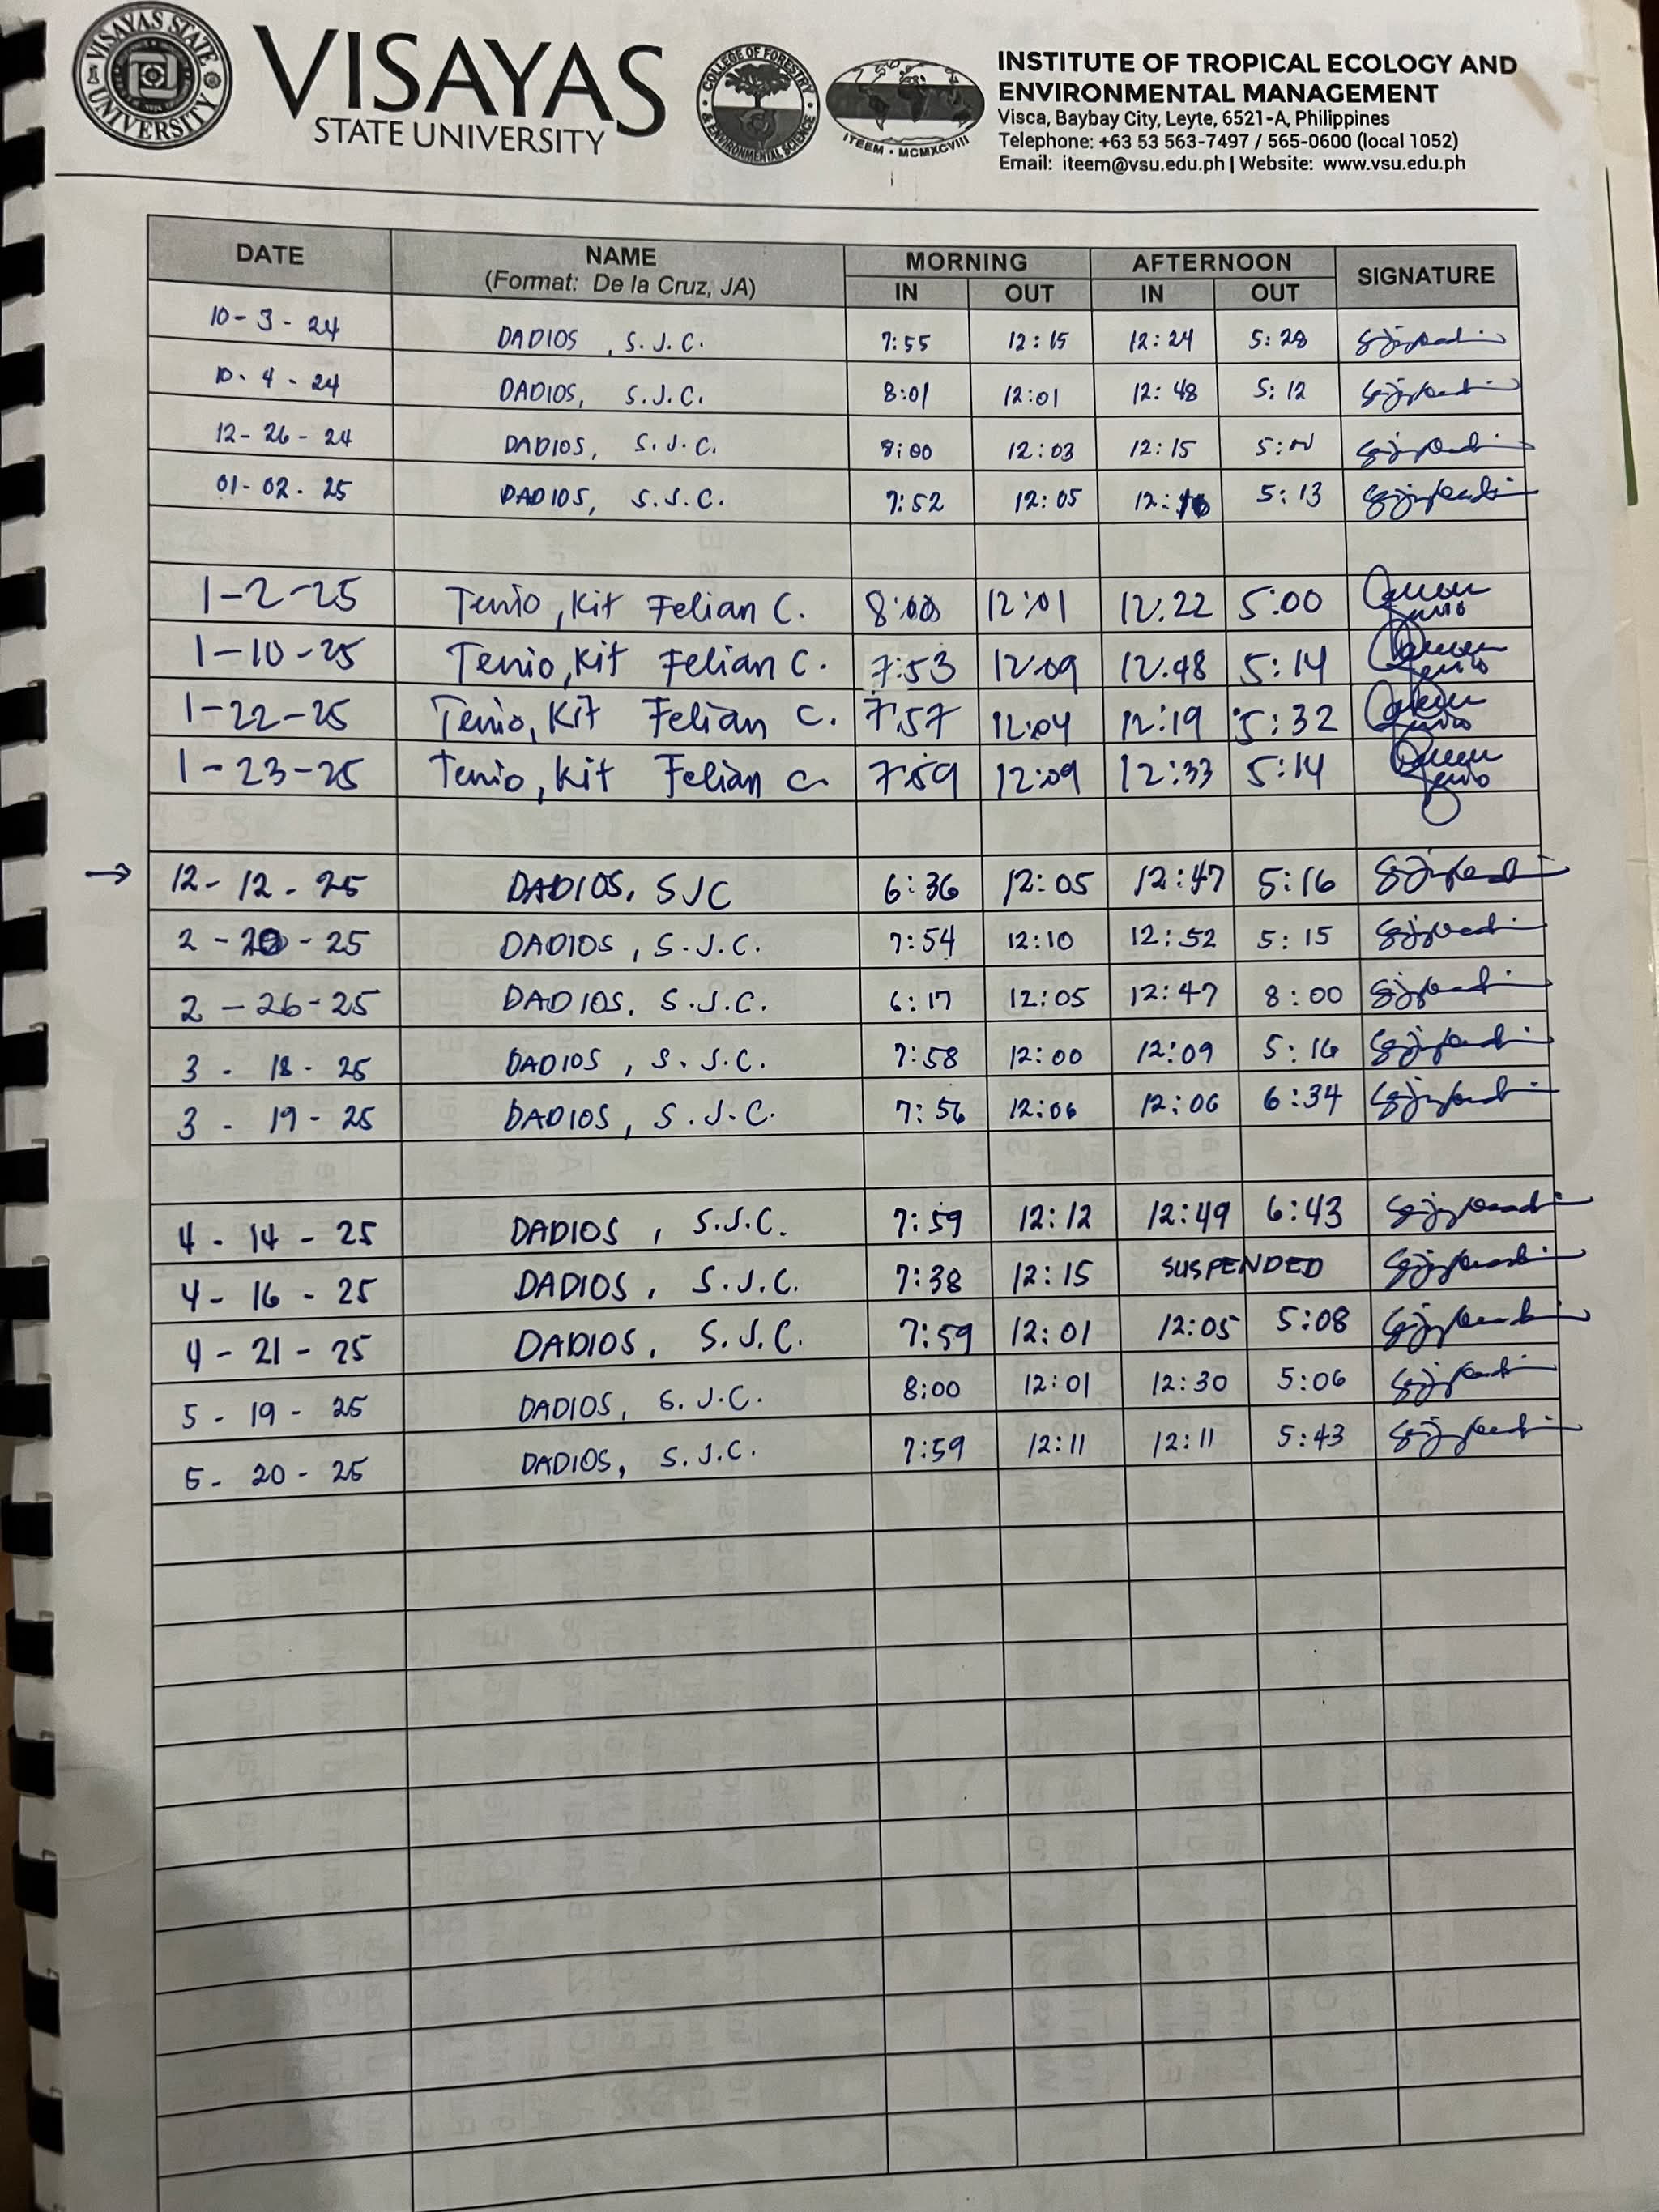 VISAYAS STATE UNIVERSITY
VISAYAS
STATE UNIVERSITY
COLLEGE OF FORESTRY & ENVIRONMENTAL SCIENCE
ITEEM • MCMXCVIII
INSTITUTE OF TROPICAL ECOLOGY AND
ENVIRONMENTAL MANAGEMENT
Visca, Baybay City, Leyte, 6521-A, Philippines
Telephone: +63 53 563-7497 / 565-0600 (local 1052)
Email: iteem@vsu.edu.ph | Website: www.vsu.edu.ph
DATE NAME MORNING AFTERNOON SIGNATURE
(Format: De la Cruz, JA) IN OUT IN OUT
10-3-24 DADIOS, S.J.C. 7:55 12:15 12:24 5:28
10-4-24 DADIOS, S.J.C. 8:01 12:01 12:48 5:12
12-26-24 DADIOS, S.J.C. 8:00 12:03 12:15
01-02-25 DADIOS, S.J.C. 7:52 12:05 5:13
1-2-25 Tenio, Kit Felian C. 8:00 12:01 12:22 5:00
1-10-25 Tenio, Kit Felian C. 7:53 12:09 12:48 5:14
1-22-25 Tenio, Kit Felian C. 7:57 12:04 12:19 5:32
1-23-25 Tenio, Kit Felian C. 7:59 12:09 12:33 5:14
→ 12-12-25 DADIOS, SJC 6:36 12:05 12:47 5:16
2-20-25 DADIOS, S.J.C. 7:54 12:10 12:52 5:15
2-26-25 DADIOS, S.J.C. 6:17 12:05 12:47 8:00
3-18-25 DADIOS, S.J.C. 7:58 12:00 12:09 5:16
3-19-25 DADIOS, S.J.C. 7:56 12:06 12:06 6:34
4-14-25 DADIOS, S.J.C. 7:59 12:12 12:49 6:43
4-16-25 DADIOS, S.J.C. 7:38 12:15 SUSPENDED
4-21-25 DADIOS, S.J.C. 7:59 12:01 12:05 5:08
5-19-25 DADIOS, S.J.C. 8:00 12:01 12:30 5:06
5-20-25 DADIOS, S.J.C. 7:59 12:11 12:11 5:43